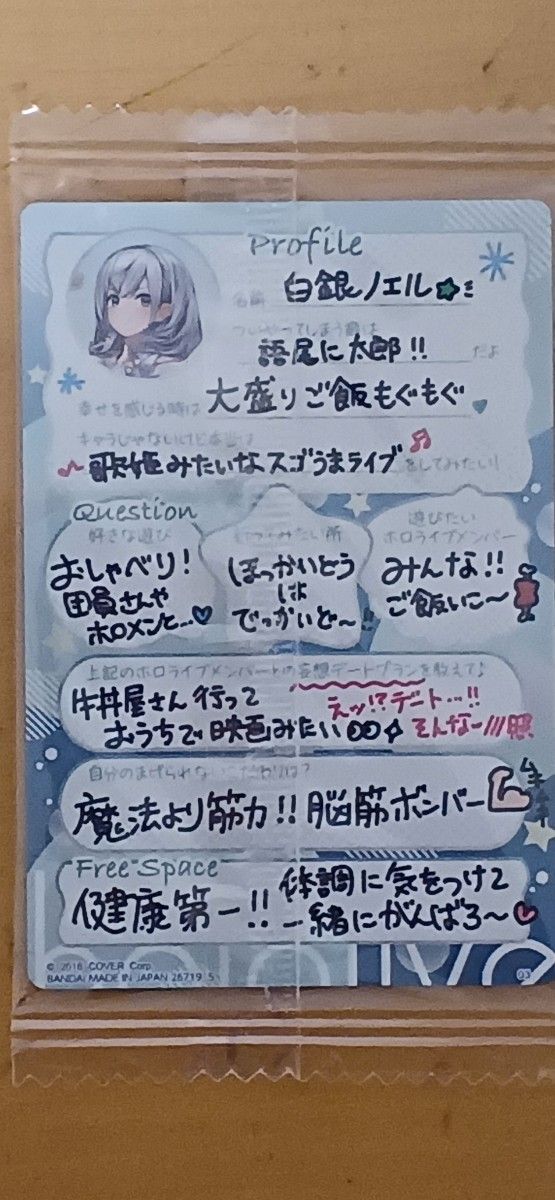 Profile
名前 白銀ノエル
ついやってしまう癖は
語尾に太郎!! だよ
幸せを感じる時は 大盛りご飯もぐもぐ
キャラじゃないけど本当は
歌姫みたいなスゴうまライブ をしてみたい!
Question
好きな遊び
おしゃべり!
団員さんや
ホロメンと…
みたい所
ほっかいどう
は
でっかいど〜!!
遊びたい
ホロライブメンバー
みんな!!
ご飯いこ〜
上記のホロライブメンバーとの妄想デートプランを教えて♪
牛丼屋さん行って
おうちで映画みたい
えッ!?デート…!!
そんなー///照
自分のまげられないこだわりは?
魔法より筋力!! 脳筋ボンバー
Free Space
健康第一!!
体調に気をつけて
一緒にがんばろ〜
© 2016 COVER Corp.
BANDAI MADE IN JAPAN 26719 5